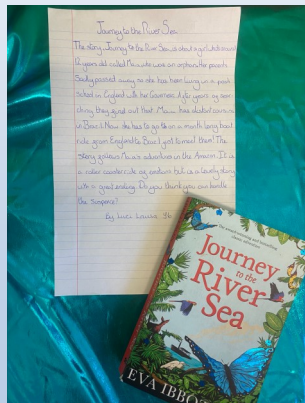 Journey to the River Sea
The story Journey to the River Sea is about a girl who is around
12 years old called Maia who was an orphan after her parents
Sadly passed away so she has been living in a
school in England with her Governess. After years of sear
ching they find out that Maia has distant cousins
in Brazil. Now she has to go on a month long boat
ride from England to Brazil just to meet them! The
story follows Maia's adventure in the Amazon. It is
a roller coaster ride of emotions but is a lovely story
with a great ending. Do you think you can handle
the suspense?
By
Journey
to the
River
Sea
EVA IBBOT